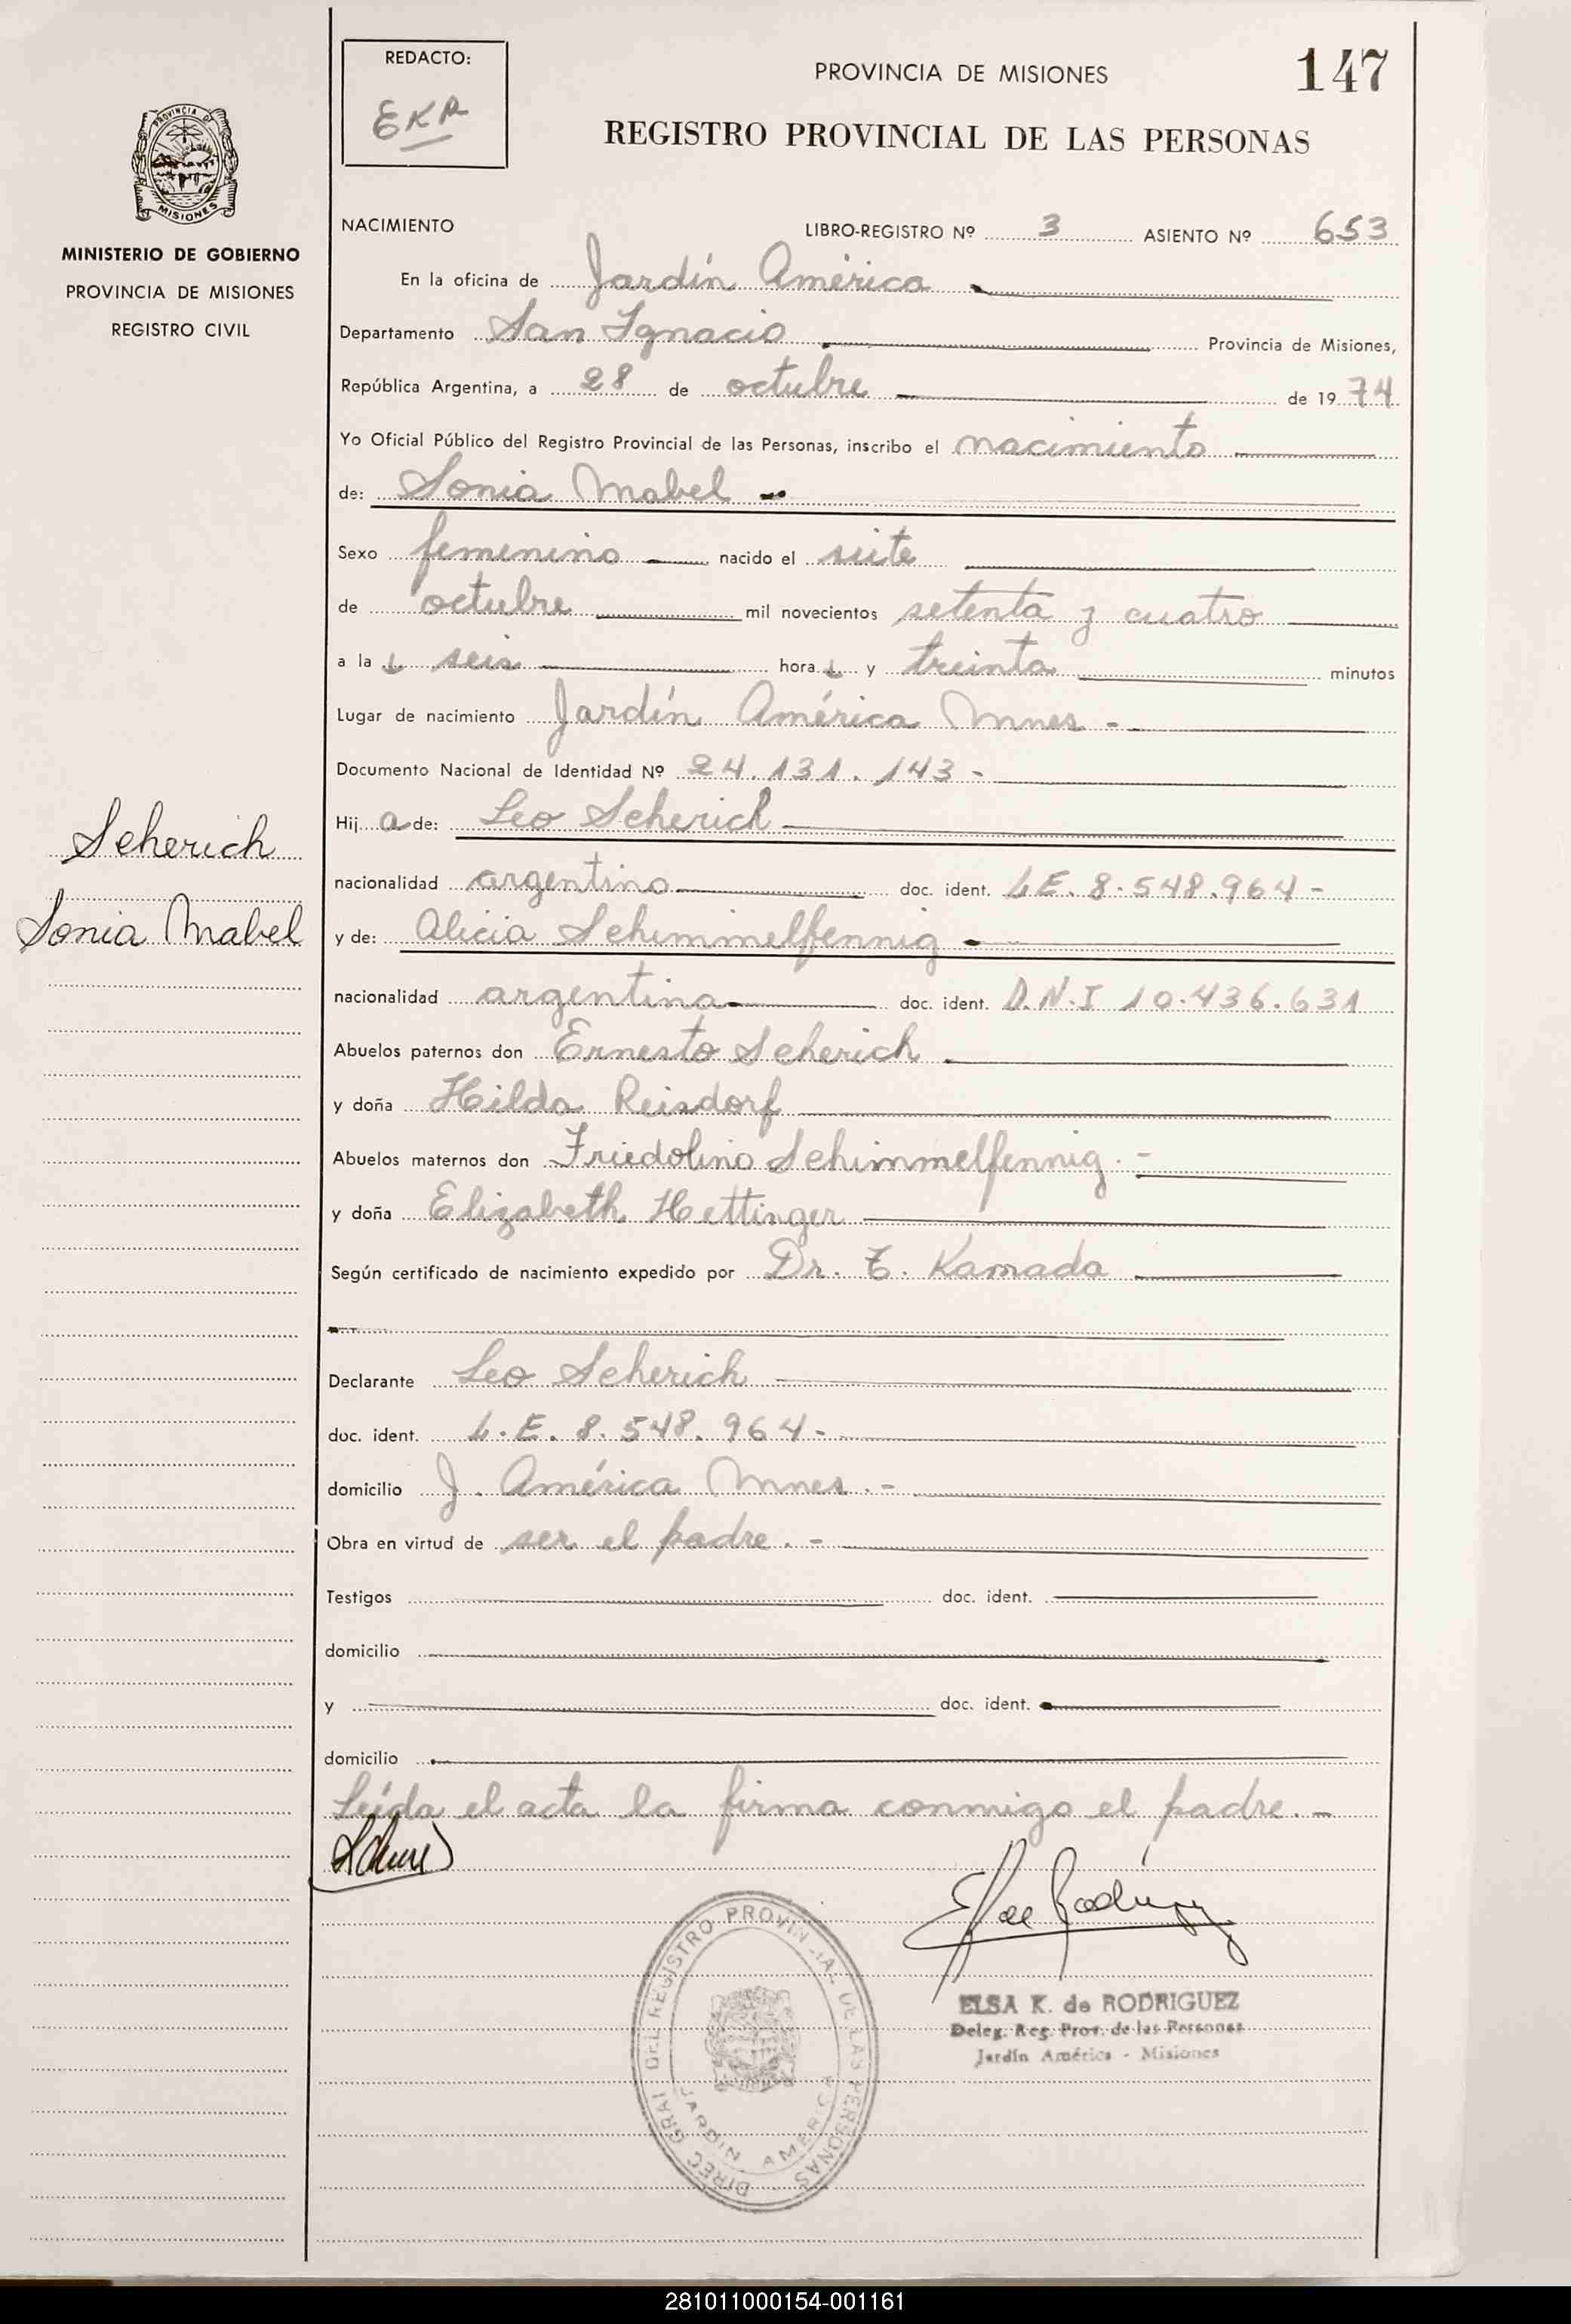 REDACTO:
EKR
PROVINCIA DE MISIONES
147
REGISTRO PROVINCIAL DE LAS PERSONAS
PROVINCIA D
MISIONES
MINISTERIO DE GOBIERNO
PROVINCIA DE MISIONES
REGISTRO CIVIL
NACIMIENTO LIBRO-REGISTRO Nº 3 ASIENTO Nº 653
En la oficina de Jardín América
Departamento San Ignacio Provincia de Misiones,
República Argentina, a 28 de octubre de 1974
Yo Oficial Público del Registro Provincial de las Personas, inscribo el nacimiento
de: Sonia Mabel -
Sexo femenino nacido el siete
de octubre mil novecientos setenta y cuatro
a las seis horas y treinta minutos
Lugar de nacimiento Jardín América Mnes -
Documento Nacional de Identidad Nº 24.131.143-
Hija de: Leo Scherich
nacionalidad argentino doc. ident. L.E. 8.548.964-
y de: Alicia Schimmelfennig
nacionalidad argentina doc. ident. D.N.I 10.436.631
Abuelos paternos don Ernesto Scherich
y doña Hilda Reisdorf
Abuelos maternos don Friedolino Schimmelfennig.-
y doña Elizabeth Hettinger
Según certificado de nacimiento expedido por Dr. T. Kamada
Declarante Leo Scherich
doc. ident. L.E. 8.548.964-
domicilio J. América Mnes.-
Obra en virtud de ser el padre.-
Testigos doc. ident.
domicilio
y doc. ident.
domicilio
Leída el acta la firma conmigo el padre.-
Scherich
Sonia Mabel
Elsa Rodríguez
ELSA K. de RODRIGUEZ
Deleg. Reg. Prov. de las Personas
Jardín América - Misiones
DIREC GRAL DEL REGISTRO PROVINCIAL DE LAS PERSONAS
JARDIN AMERICA
281011000154-001161